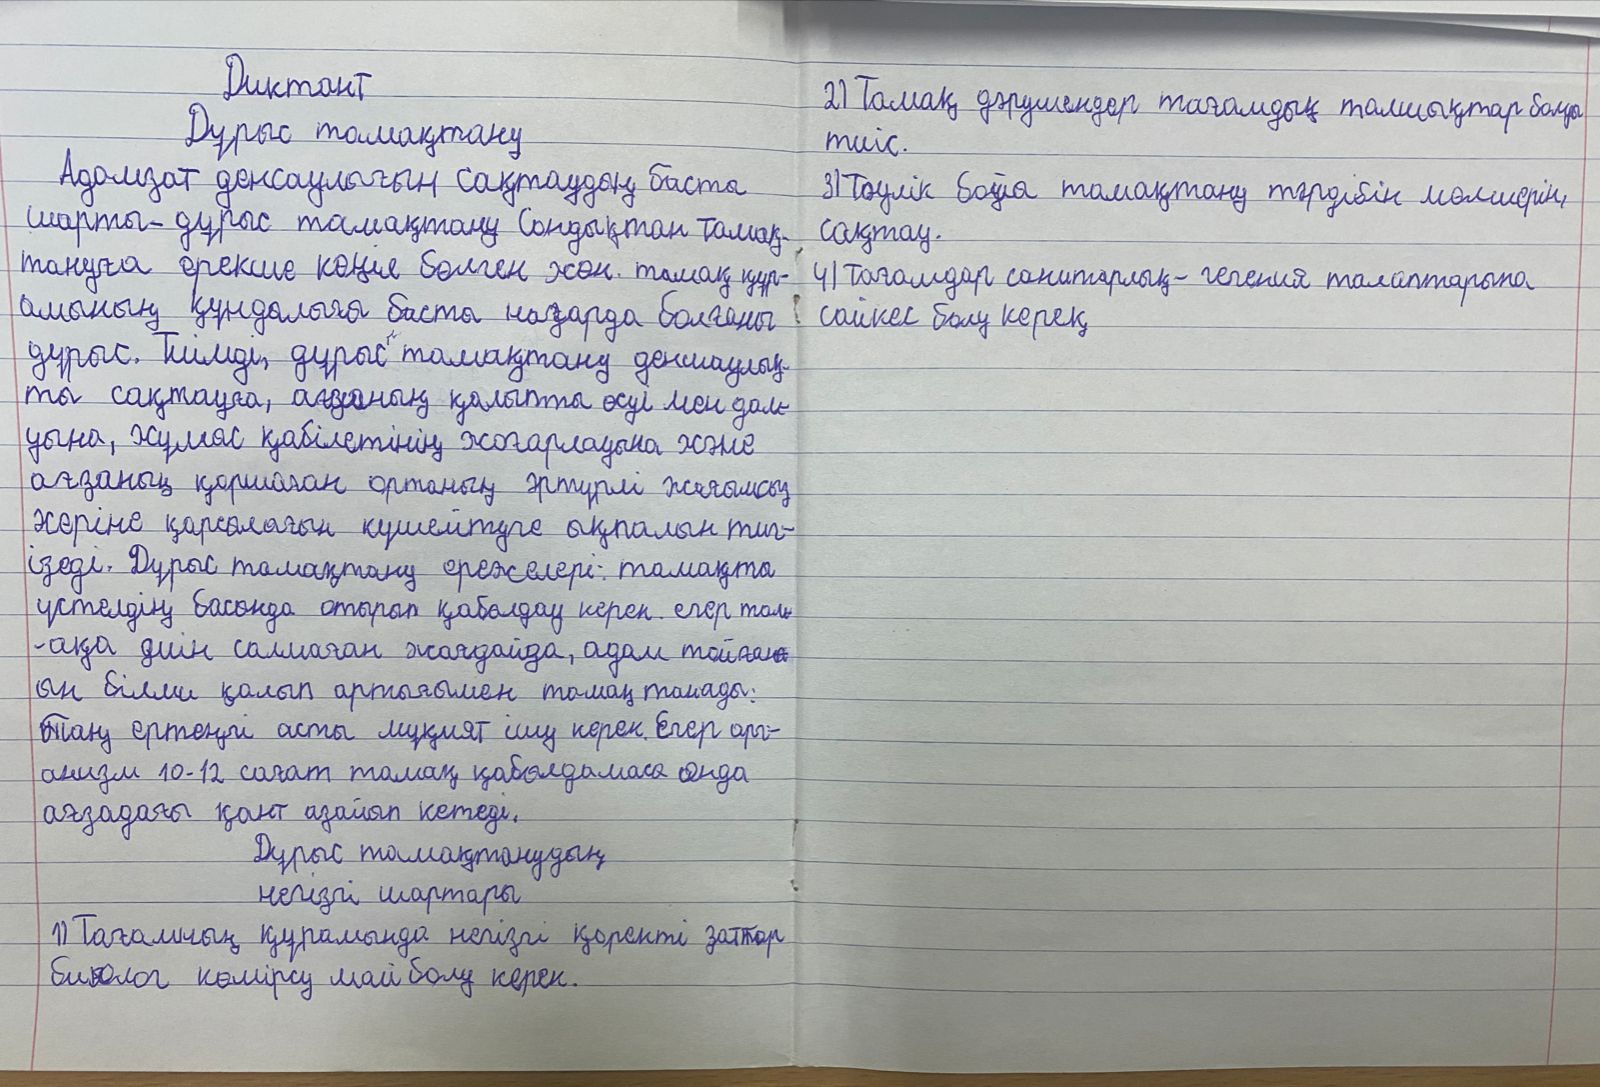 Диктант
Дұрыс тамақтану
Адамзат денсаулығын сақтаудың басты
шарты- дұрыс тамақтану Сондықтан тамақ-
тануға ерекше көңіл бөлген жөн. тамақ құр-
амының құндалығы басты назарда болғаны
дұрыс. Тиімді, дұрыс тамақтану деншаулық-
ты сақтауға, ағзаның қалыпты өсуі мен дам-
уына, жұмыс қабілетінің жоғарлауына және
ағзаның қоршаған ортаның әртүрлі жағымсыз
жеріне қарсылағын күшейтуге ықпалын тиг-
ізеді. Дұрыс тамақтану ережелері: тамақты
үстелдің басында отырып қабылдау керек. егер там-
-аққа диін салмаған жағдайда, адам тойған
ын білми қалып артығымен тамақтанады.
Таң ертеңгі асты мұқият ішу керек. Егер орг-
анизм 10-12 сағат тамақ қабылдамаса онда
ағзадағы қант азайып кетеді.
Дұрыс тамақтанудың
негізгі шартары
1) Тағамның құрамында негізгі қоректі заттар
көмірсу май болу керек.
2) Тамақ дәрумендер тағамдық талшықтар болуы
тиіс.
3) Тәулік бойы тамақтану тәрдібін мөлшерін,
сақтау.
4) Тағамдар санитарлық- гегения талаптарына
сәйкес болу керек